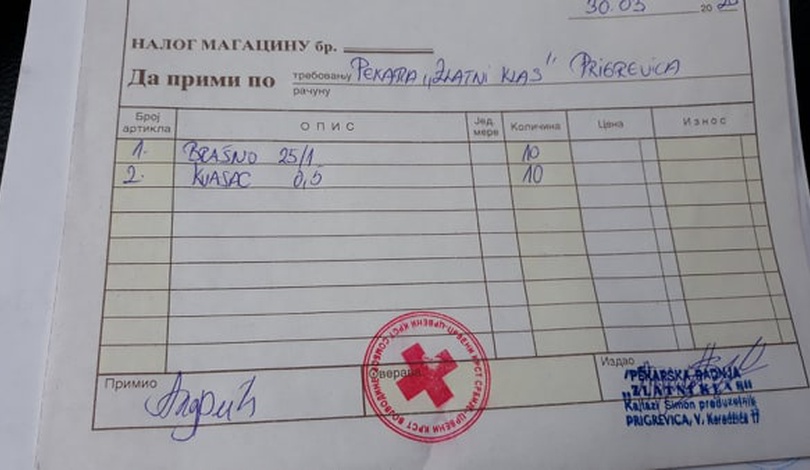 30.03 20 20
НАЛОГ МАГАЦИНУ бр.
Да прими по требовању рачуну PEKARA „ZLATNI KLAS" PRIGREVICA
Број артикла ОПИС Јед. мере Количина Цена Износ
1. BRAŠNO 25/1 10
2. KVASAC 0,5 10
Примио Оверава Издао
Андрић
ЦРВЕНИ КРСТ СРБИЈЕ ЦРВЕНИ КРСТ ВОЈВОДИНЕ ЦРВЕНИ КРСТ
PEKARSKA RADNJA
„ZLATNI KLAS"
Kajtazi Simon preduzetnik
PRIGREVICA, V. Karadžića 77